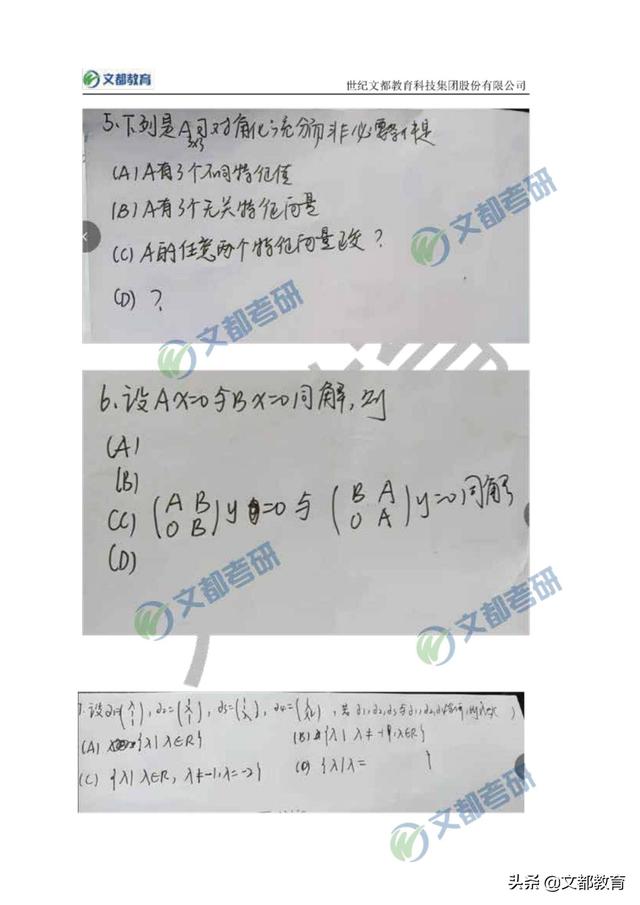 文都教育
世纪文都教育科技集团股份有限公司
5.下列是A可对角化充分而非必要条件是
3×3
(A) A有3个不同特征值
(B) A有3个无关特征向量
(C) A的任意两个特征向量正交?
(D) ?
文都考研
文都考研
6.设Ax=0与Bx=0同解,则
(A)
(B)
(C) (A B
0 B) y=0与 (B A
0 A) y=0同解
(D)
文都考研
文都考研
7.设α1=(λ 1 1), α2=(1 λ 1), α3=(1 1 λ), α4=(1 λ λ2), 若α1,α2,α3与α1,α2,α4
(A) {λ|λ∈R}
(B) {λ|λ≠-1,λ∈R}
(C) {λ|λ∈R, λ≠-1,λ≠-2}
(D) {λ|λ= }
文都考研
头条 @文都教育